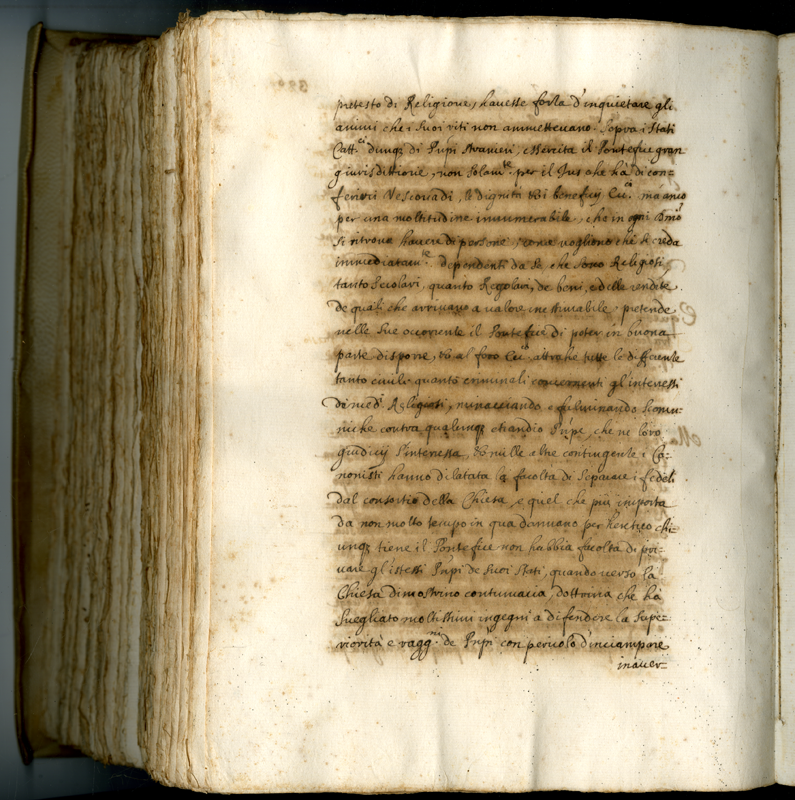 pretesto di Religione, havesse forza d'inquietare gli
animi che i suoi riti non ammettevano. Sopra i Stati
Catt.ci dunq; di Pnpi stranieri, essercita il Pontefice gran
giurisdittione, non solam.te per il Jus che hà di con=
feririi Vescovadi, le dignità et i beneficij ma anco
per una moltitudine innumerabile, che in ogni Dmo
si ritrova havere di persone, come vogliono che si creda
immediatam.te dependenti da se, che sono Religiosi
tanto Secolari, quanto Regolari, de beni, e delle rendite
de quali che arrivano a valore inestimabile pretende
nelle sue occorrenze il Pontefice di poter in buona
parte disporre, et al foro attrahe tutte le differenze
tanto civili quanto criminali concernenti gl'interessi
de med.i Religiosi, minacciando e fulminando scomu=
niche contra qualunq; etiandio Pnpe, che ne loro
giudicij s'interessa, et nelle altre contingenze i Ca=
nonisti hanno dilatata la facoltà di separare i fedeli
dal consortio della Chiesa, e quel che più importa
da non molto tempo in qua dannano per heretico chi=
unq; tiene il Pontefice non habbia facoltà di pri=
vare gl'istessi Pnpi de suoi stati, quando verso la
Chiesa dimostrino contumacia, dottrina che hà
svegliato moltissimi ingegni a difendere la supe=
riorità e ragg.ni de Pnpi con pericolo d'inciampare
inaver=